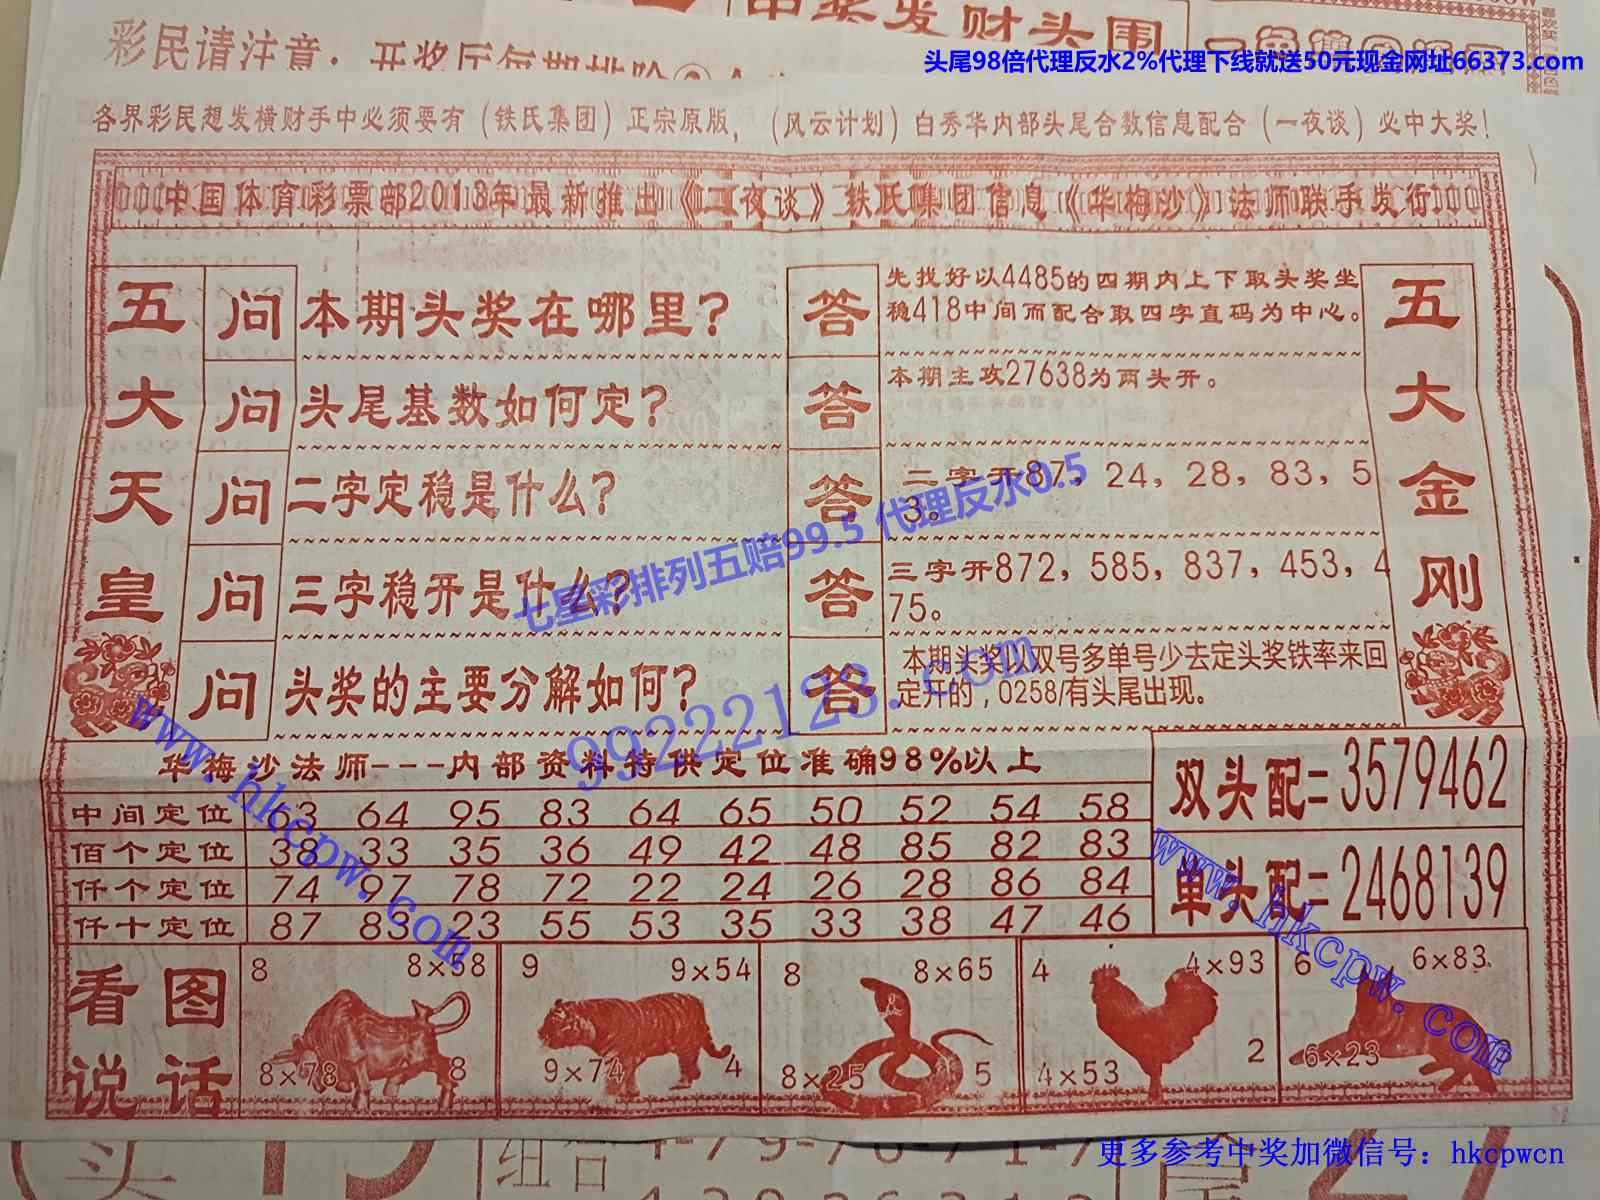 中奖发财头围
彩民请注意：开奖厅每期排除
头尾98倍代理反水2%代理下线就送50元现金网址66373.com
各界彩民想发横财手中必须要有（铁氏集团）正宗原版，（风云计划）白秀华内部头尾合数信息配合（一夜谈）必中大奖！
中国体育彩票部2018年最新推出《二夜谈》铁氏集团信息《华梅沙》法师联手发行
五大天皇
问 本期头奖在哪里？
答 先找好以4485的四期内上下取头奖坐
稳418中间而配合取四字直码为中心。
问 头尾基数如何定？
答 本期主攻27638为两头开。
问 二字定稳是什么？
答 二字开87，24，28，83，5
3。
问 三字稳开是什么？
答 三字开872，585，837，453，4
75。
问 头奖的主要分解如何？
答 本期头奖以双号多单号少去定头奖铁率来回
定开的，0258/有头尾出现。
五大金刚
七星彩排列五赔99.5 代理反水0.5
99222128.com
www.hkcpw.com
华梅沙法师---内部资料特供定位准确98%以上
中间定位 63 64 95 83 64 65 50 52 54 58
佰个定位 38 33 35 36 49 42 48 85 82 83
仟个定位 74 97 78 72 22 24 26 28 86 84
仟十定位 87 83 23 55 53 35 33 38 47 46
双头配=3579462
单头配=2468139
www.hkcpw.com
看图
说话
8 8×68
8×78 8
9 9×54
9×74 4
8 8×65
8×25 5
4 4×93
4×53 2
6 6×83
6×23
头
组合 4-79-76-71-7
尾 27
更多参考中奖加微信号：hkcpwcn